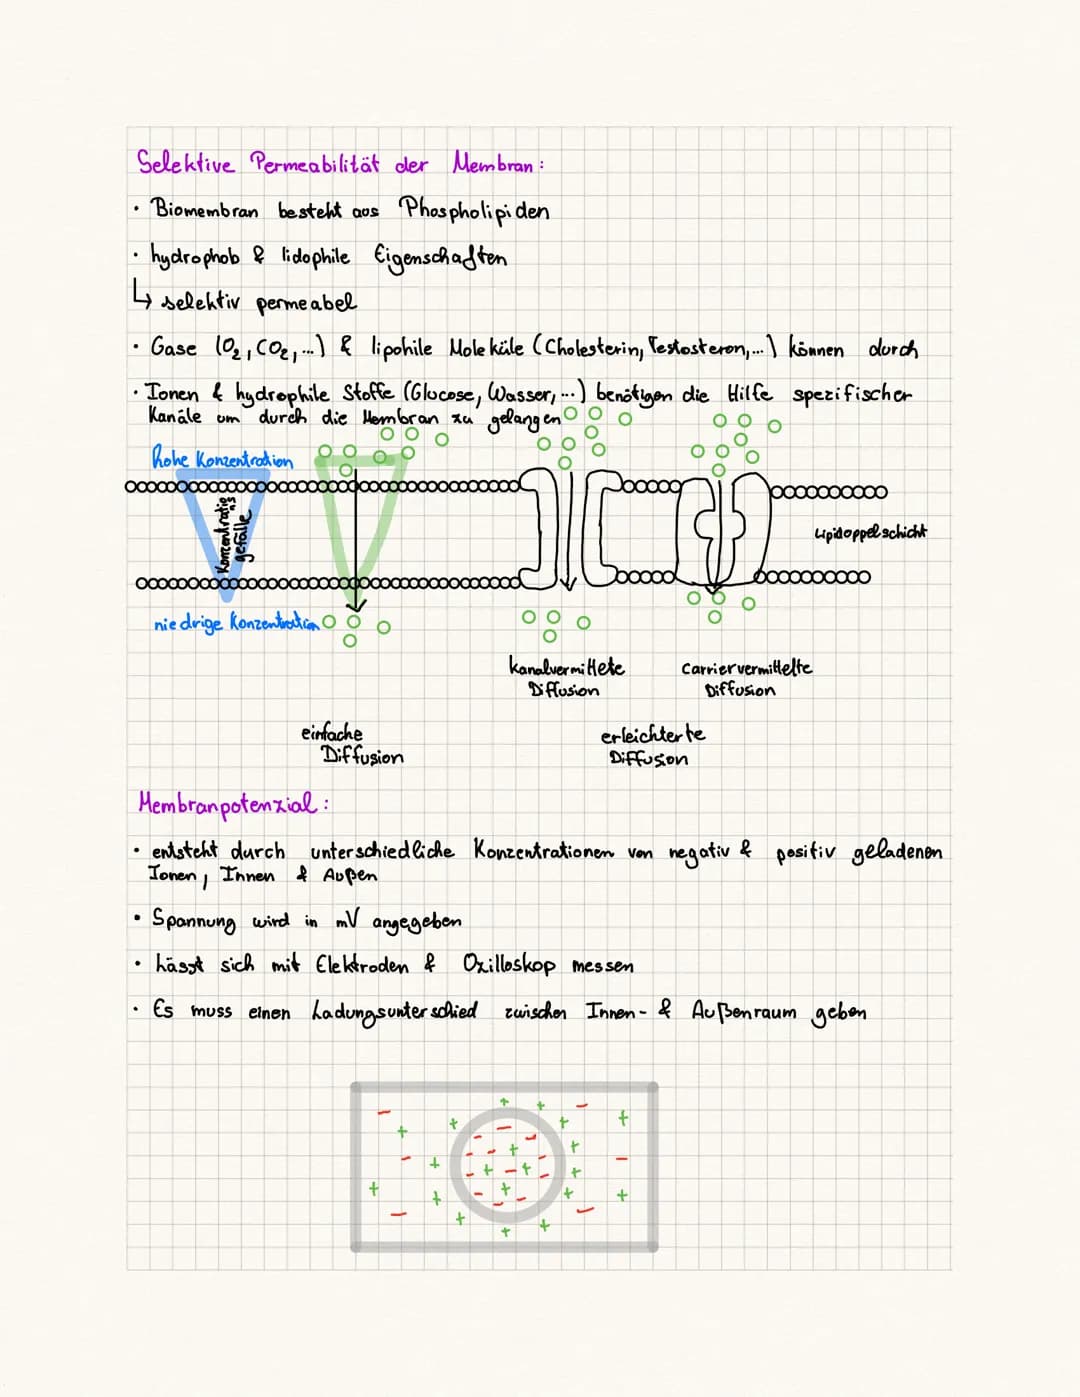 Selektive Permeabilität der Membran:
• Biomembran besteht aus Phospholipiden
• hydrophob & lidophile Eigenschaften
↳ selektiv permeabel
• Gase (O₂, CO₂, ...) & lipohile Moleküle (Cholesterin, Testosteron, ...) können durch
• Ionen & hydrophile Stoffe (Glucose, Wasser, ...) benötigen die Hilfe spezifischer
Kanäle um durch die Membran zu gelangen
hohe Konzentration
Konzentrations
gefälle
Lipidoppelschicht
niedrige Konzentration
kanalvermittete
Diffusion
Carriervermittelte
Diffusion
einfache
Diffusion
erleichterte
Diffusion
Membranpotenzial:
• entsteht durch unterschiedliche Konzentrationen von negativ & positiv geladenen
Ionen, Innen & Außen
• Spannung wird in mV angegeben
• Lässt sich mit Elektroden & Oxilloskop messen
• Es muss einen Ladungsunterschied zwischen Innen- & Außenraum geben